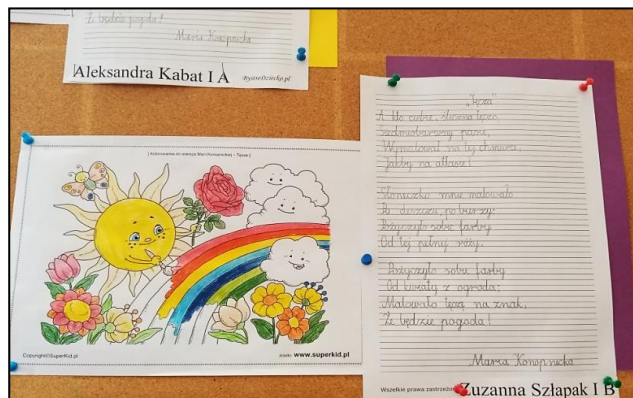 Że będzie pogoda!
Maria Konopnicka
Aleksandra Kabat I A
BystreDziecko.pl
[ Kolorowanka do wiersza Marii Konopnickiej - Tęcza ]
Copyright©SuperKid.pl
źródło: www.superkid.pl
„Tęcza”
A kto ciebie, śliczna tęczo,
Siedmiobarwny pasie,
Wymalował na tej chmurze,
Jakby na atłasie?
Słoneczko mnie malowało
Po deszczu, po burzy;
Pożyczyło sobie farby
Od tej pełnej róży.
Pożyczyło sobie farby
Od kwiatów z ogroda;
Malowało tęczę na znak,
Że będzie pogoda!
Maria Konopnicka
Wszelkie prawa zastrzeżone
Zuzanna Szłapak I B